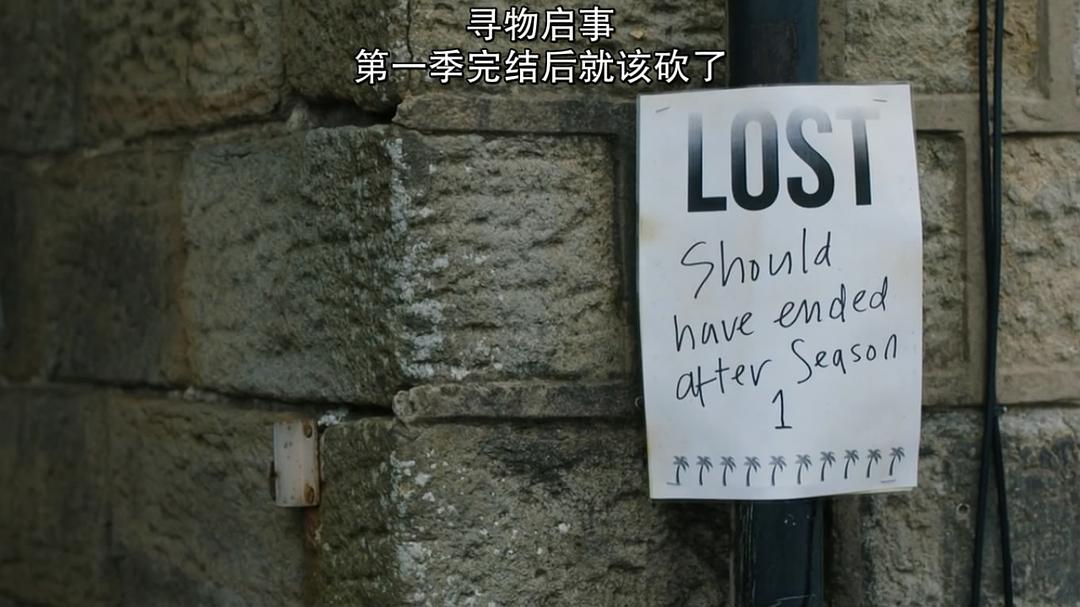 寻物启事
第一季完结后就该砍了
LOST
Should
have ended
after Season
1